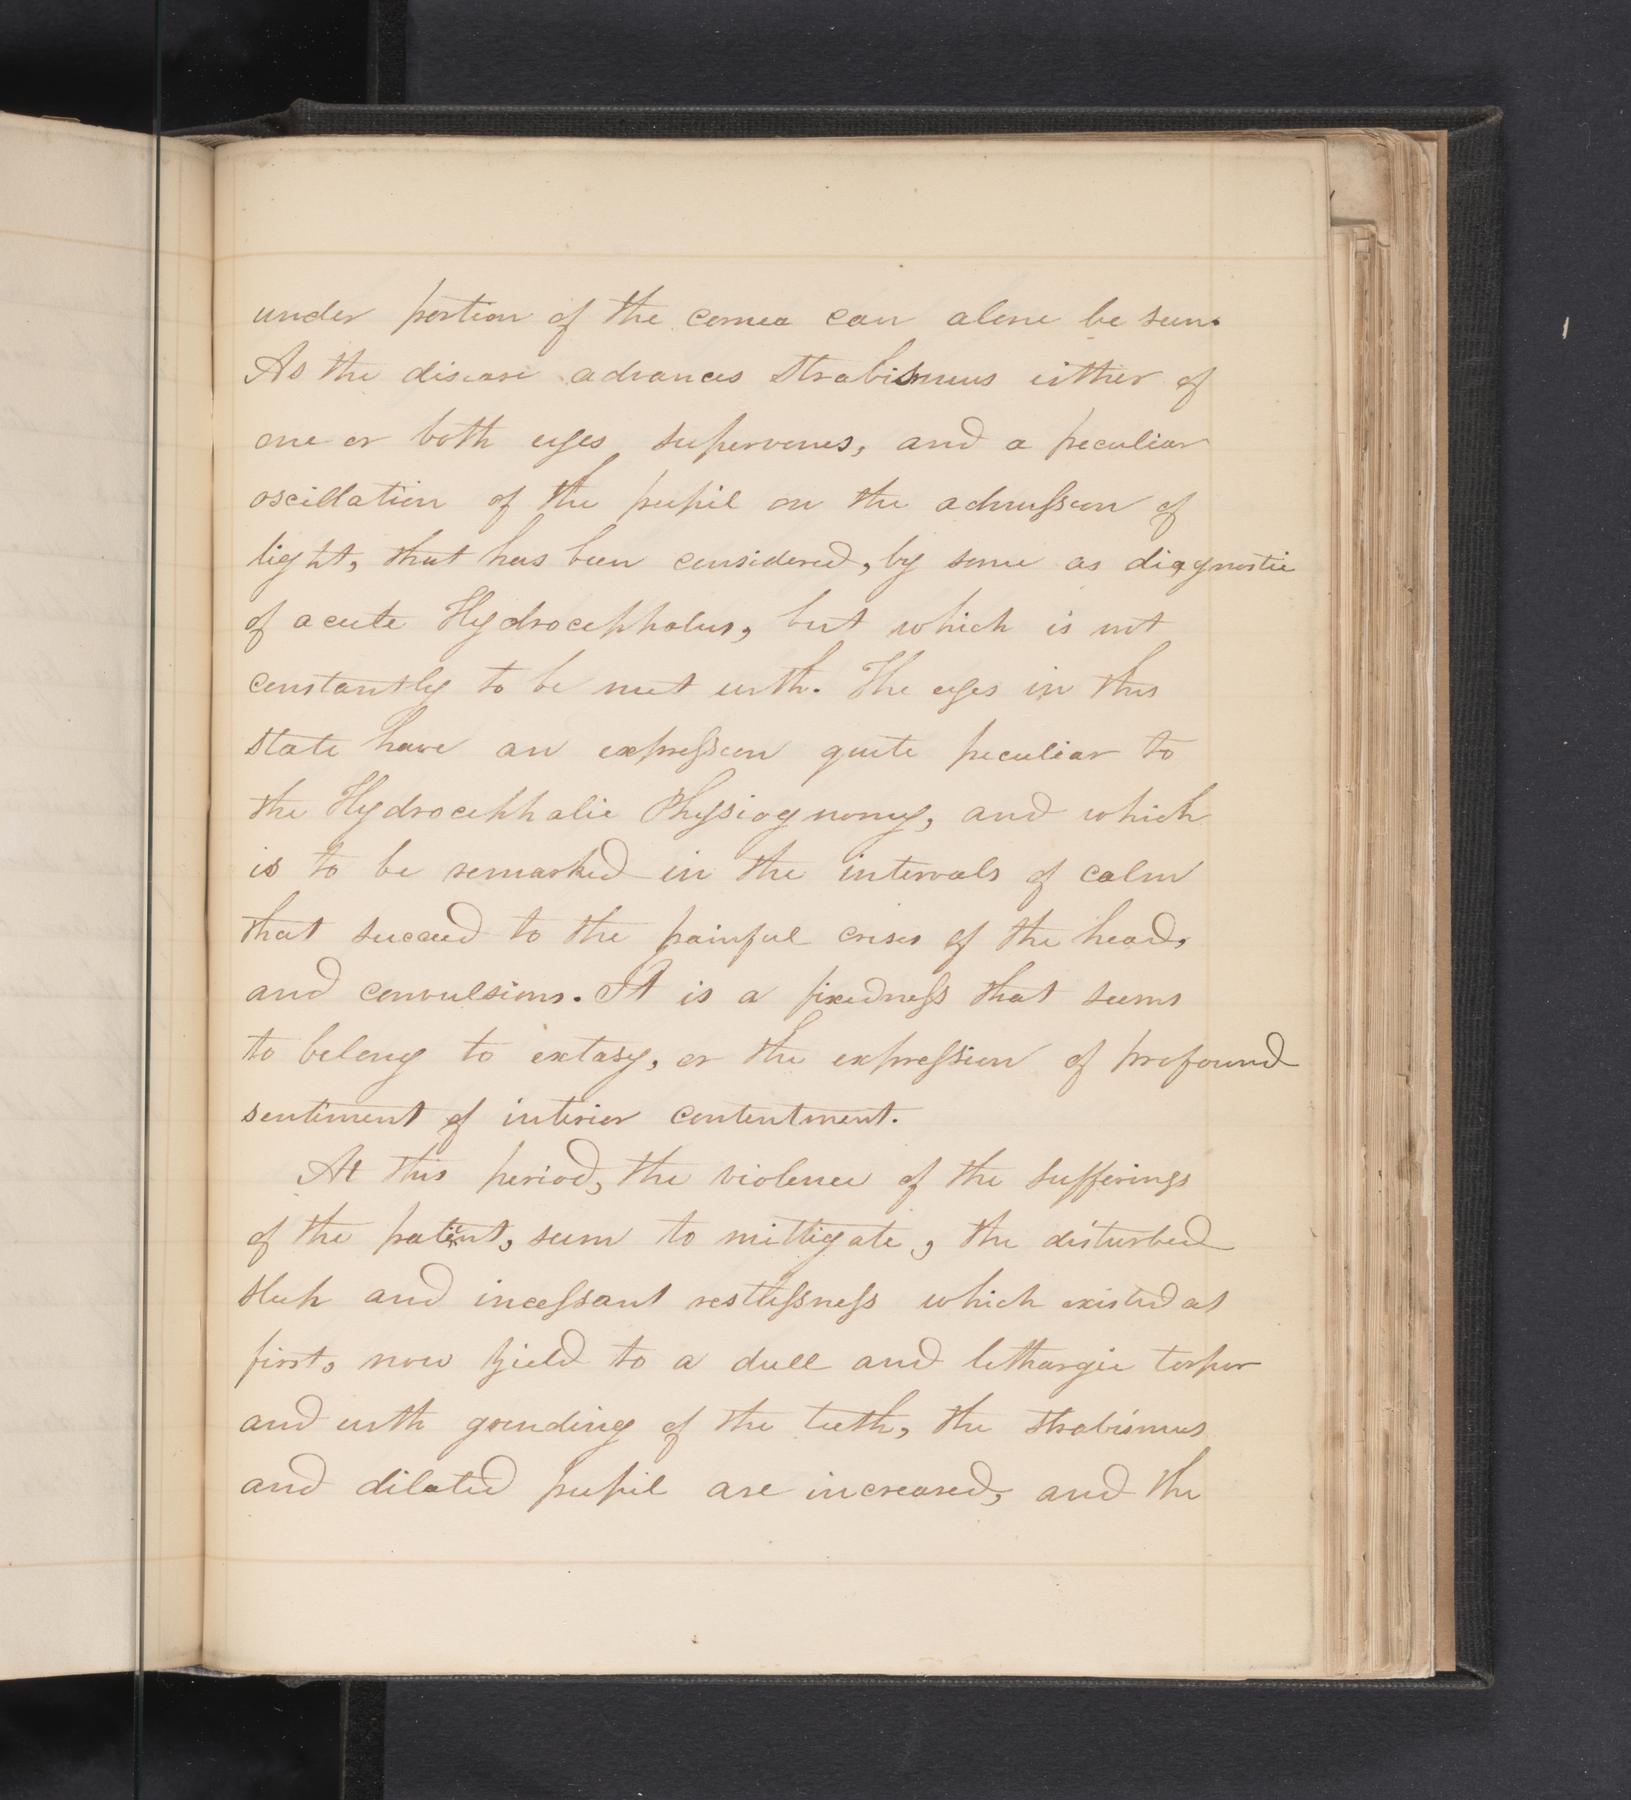 under portion of the cornea can alone be seen.
As the disease advances strabismus either of
one or both eyes supervenes, and a peculiar
oscillation of the pupil on the admission of
light, that has been considered, by some as diagnostic
of acute Hydrocephalus, but which is not
constantly to be met with. The eyes in this
state have an expression quite peculiar to
the Hydrocephalic Physiognomy, and which
is to be remarked in the intervals of calm
that succeed to the painful crises of the head,
and convulsions. It is a fixedness that seems
to belong to extasy, or the expression of profound
sentiment of interior contentment.
At this period, the violence of the sufferings
of the patient, seem to mittigate, the disturbed
sleep and incessant restlessness which existed at
first, now yield to a dull and lethargic torpor
and with grinding of the teeth, the strabismus
and dilated pupil are increased, and the